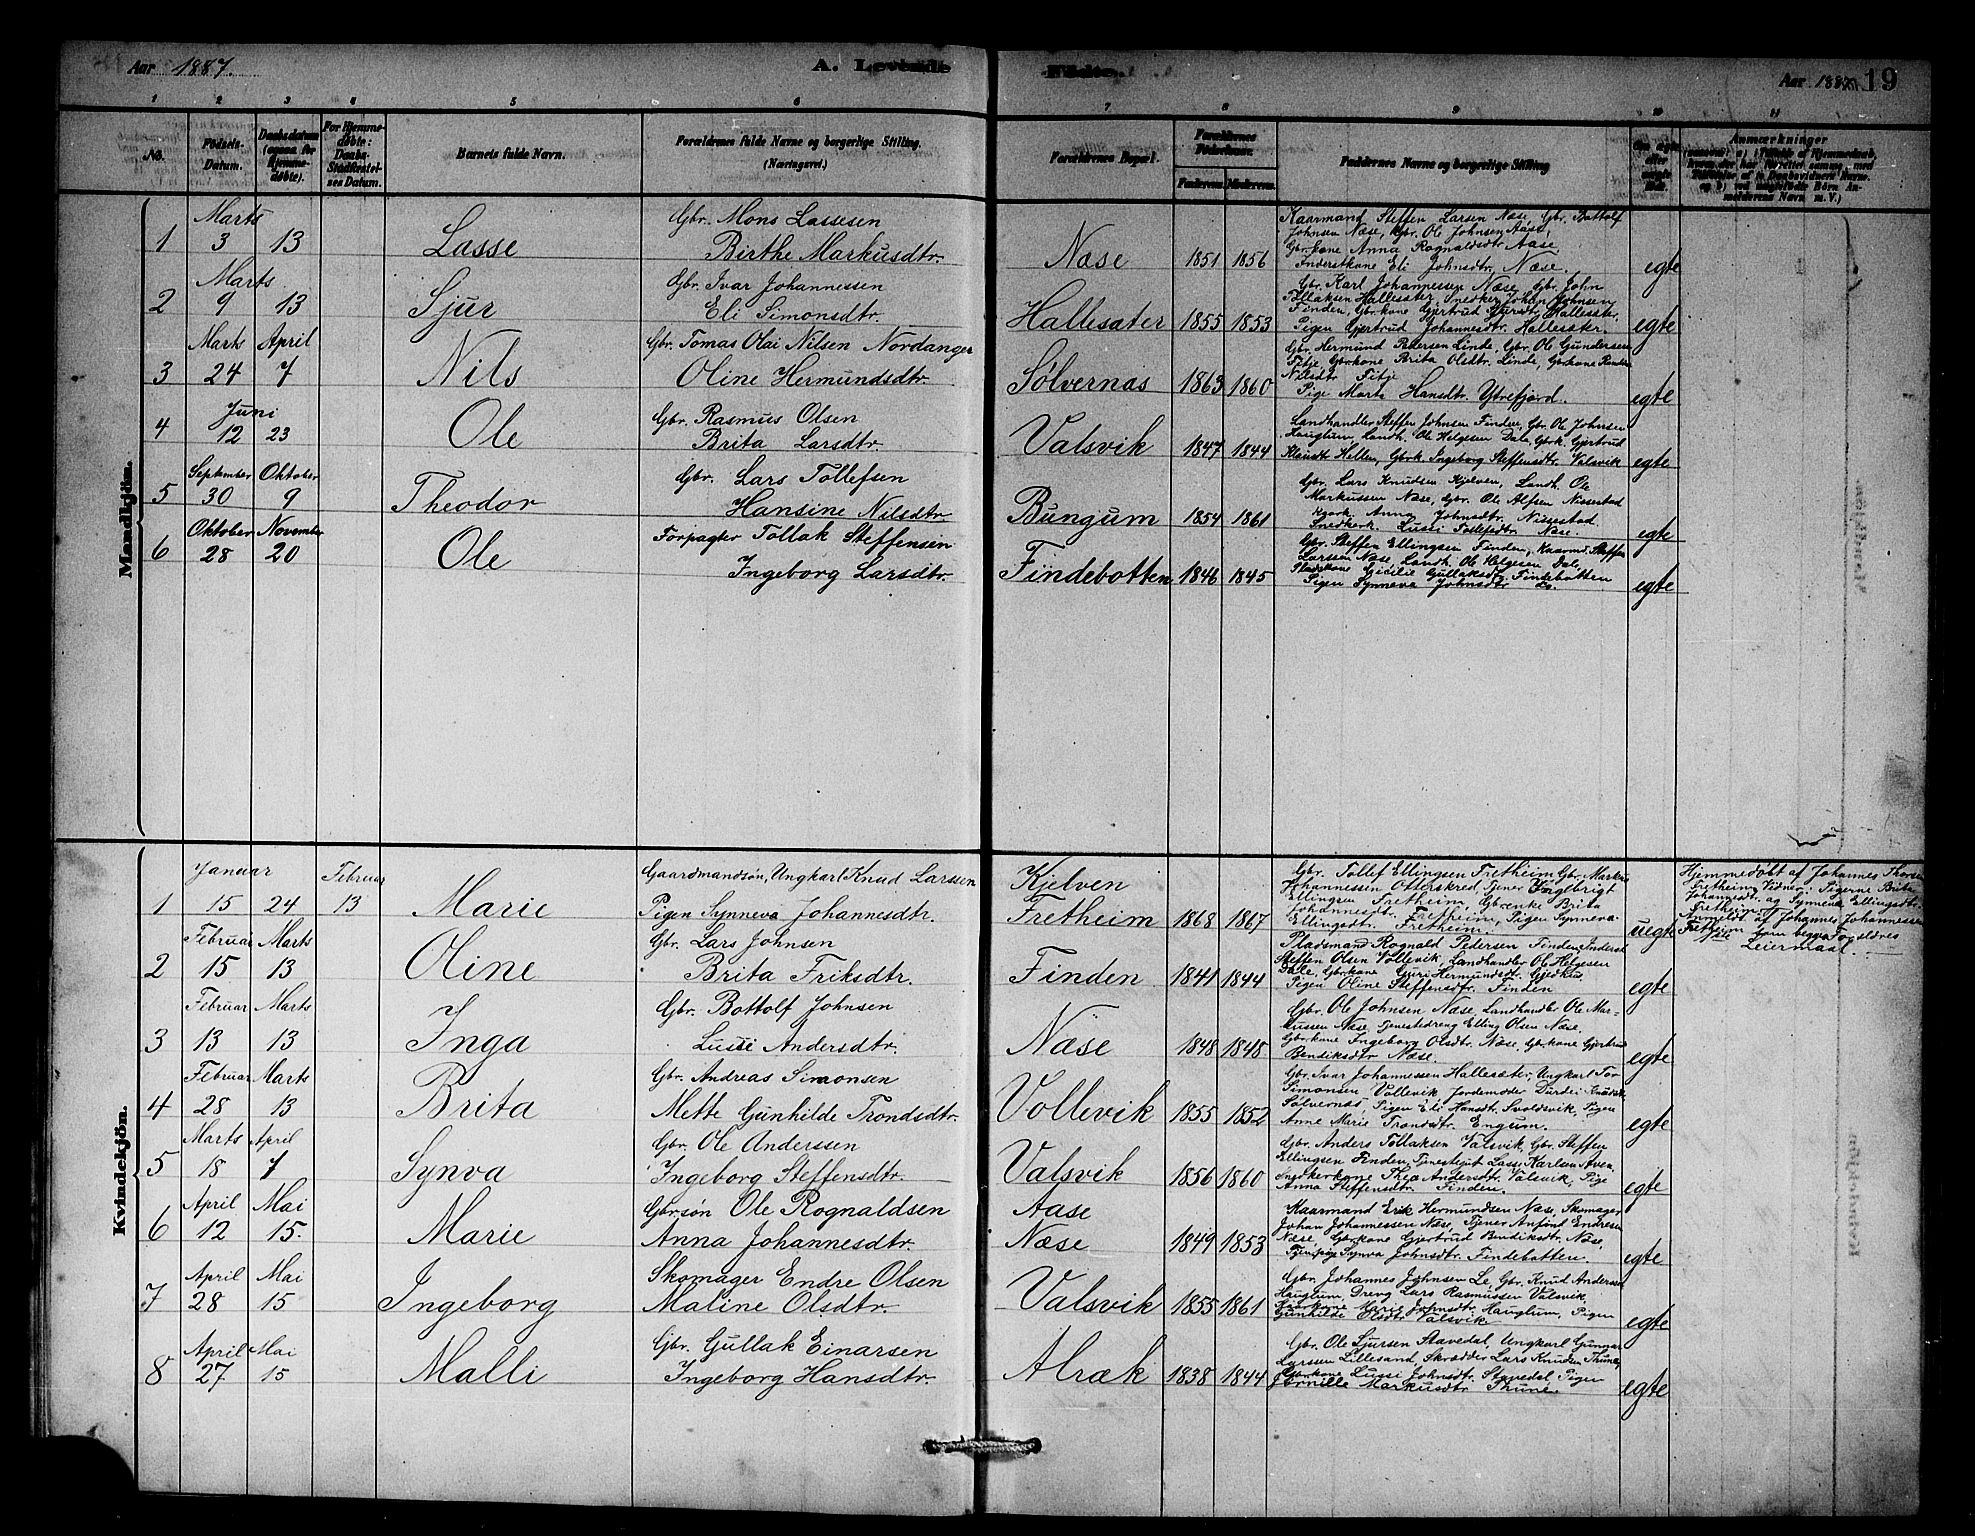 Aar 1887.
A. Levende
Fødte.
Aar 1887
19
1 2 3 4 5 6 7 8 9 10 11
No.
Fødsels-Datum.
Daabsdatum (ogsaa for Hjemme-døbte).
For Hjemme-døbte: Daabs-Stadfæstelses Datum.
Barnets fulde Navn.
Forældrenes fulde Navne og borgerlige Stilling. (Næringsvei.)
Forældrenes Bopæl.
Forældrenes Fødselsaar.
Faderens. Moderens.
Faddernes Navne og borgerlige Stilling
Om ægte eller uægte født.
Anmærkninger
Mandkjön.
Marts
1 3 13 Lasse
Gbr. Mons Lassesen
Birthe Markusdtr.
Næse 1851 1856
Kaarmand Steffen Larsen Næse, Gbr. Bottolf
Johnsen Næse, Gbr. Ole Johnsen Aase,
Gbrkone Anna Rognaldsdtr Aase
Inderstkone Eli Johnsdtr. Næse.
egte
Marts
2 9 13 Sjur
Gbr. Ivar Johannessen
Eli Simonsdtr.
Hallesæter 1855 1853
Gbr. Karl Johannessen Næse, Gbr. John
Tollaksen Hallesæter, Snedker Johan Johnsen
Finden, Gbrkone Gjertrud Sjursdtr. Hallesæter,
Pigen Gjertrud Johannesdtr. Hallesæter.
egte
Marts April
3 24 7 Nils
Gbr. Tomas Olai Nilsen Nordanger
Oline Hermundsdtr.
Sølvernæs 1863 1860
Gbr. Hermund Pedersen Linde, Gbr. Ole Gundersen
Fitje, Gbrkone Brita Olsdtr. Linde, Gbrkone
Nilsdtr Fitje
Pige Marta Hansdtr. Ytrefjord.
egte
Juni
4 12 23 Ole
Gbr. Rasmus Olsen
Brita Larsdtr.
Valsvik 1847 1844
Landhandler Steffen Johnsen Finden, Gbr. Ole Johnsen
Hauglum, Landh. Ole Helgesen Dale, Gbrk. Gjertrud
Hellen, Gbrk. Ingeborg Steffensdtr. Valsvik
egte
September Oktober
5 30 9 Theodor
Gbr. Lars Tollefsen
Hansine Nilsdtr.
Bungum 1854 1861
Gbr. Lars Knutsen Kjelven, Landh. Ole
Markussen Næse, Gbr. Ole Alfsen Nissestad
Anna Johnsdtr. Nissestad
Snedkerk. Lussi Tollefsdtr Næse.
egte
Oktober November
6 28 20 Ole
Forpagter Tollak Steffensen
Ingeborg Larsdtr.
Findebotten 1846 1845
Gbr. Steffen Ellingsen Finden, Kaarmd. Steffen
Larsen Næse, Landh. Ole Helgesen Dale,
Pladskone Cicilie Gullaksdtr Findebotten
Pigen Synneva Johnsdtr Do.
egte
Kvindekjön.
Januar Februar
1 15 24 13 Marie
Gaardmandsøn, Ungkarl Knud Larssen
Pigen Synneva Johannesdtr.
Kjelven
Fretheim 1868 1867
Gbr. Tollef Ellingsen Fretheim Gbr. Markus
Johannessen Otterskred, Tjener Ingebrigt
Ellingsen Fretheim, Gbrenke Brita
Johannesdt. Fretheim, Pigen Synneva
Ellingsdt. Fretheim.
uegte
Hjemmedöbt af Johannes Thorsen
Fretheim, Vidner: Pigerne Brita
Johannesdt. og Synneva Ellingsdtr.
Fretheim.
Anmeldt af Johannes Johannessen
Fretheim som begge Forældres
1ste Leiermaal.
Februar Marts
2 15 13 Oline
Gbr. Lars Johnsen
Brita Eriksdtr.
Finden 1841 1844
Pladsmand Rognald Pedersen Finden, Inderst
Steffen Olsen Vollevik, Landhandler Ole Helgesen
Dale, Gbrkone Guri Hermundsdt.
Pigen Oline Steffensdtr. Finden
egte
Februar Marts
3 13 13 Inga
Gbr. Bottolf Johnsen
Lussi Andersdtr.
Næse 1848 1848
Gbr. Ole Johnsen Næse, Landhandler Ole Mar-
kussen Næse, Tjenestedreng Elling Olsen Næse,
Gbrkone Ingeborg Olsdtr. Næse, Gbrkone Gjertrud
Bendiksdtr Næse.
egte
Februar Marts
4 28 13 Brita
Gbr. Andreas Simonsen
Mette Gunhilde Trondsdtr.
Vollevik 1855 1852
Gbr. Ivar Johannessen Hallesæter, Ungkarl Tor
Simonsen Vollevik Jordemoder Durdei Knudsdt.
Sølvernæs, Pigen Eli Hansdt. Svoldsvik, Pigen
Anne Marie Trondsdtr. Engum.
egte
Marts April
5 18 7 Synva
Gbr. Ole Anderssen
Ingeborg Steffensdtr.
Valsvik 1856 1860
Gbr. Anders Tollaksen Valsvik, Gbr. Steffen
Ellingsen Finden, Tjenestegut Lasse Karlsen
Snedkerkone Thea Andersdtr. Valsvik, Pige
Anna Steffensdtr. Finden.
egte
April Mai
6 12 15. Marie
Gbr.søn Ole Rognaldsen
Anna Johannesdtr.
Aase
Næse 1849 1853
Kaarmand Erik Hermundsen Næse, Skomager
Johan Johannessen Næse, Tjener Anfind Endresen
Næse, Gbrkone Gjertrud Bendiksdtr. Næse,
Tjenpige Synva Johnsdtr. Findebotten.
egte
April Mai
7 28 15 Ingeborg
Skomager Endre Olsen
Maline Olsdtr.
Valsvik 1855 1861
Gbr. Johannes Johnsen Le, Gbr. Knud Andersen
Hauglum, Dreng Lars Rasmussen Valsvik,
Gbrkone Marie Johnsdtr. Hauglum, Pigen
Gunhilde Olsdtr Valsvik
egte
April Mai
8 27 15 Malli
Gbr. Gullak Einarsen
Ingeborg Hansdtr.
Alræk 1838 1844
Gbr. Ole Sjursen Stavedal, Ungkarl Gunnar
Larssen Lillesand, Skrædder Lars Knudsen Thune,
Gbrkone Lussi Johnsdtr. Stavedal, Pigen
Pernille Markusdtr Thune.
egte